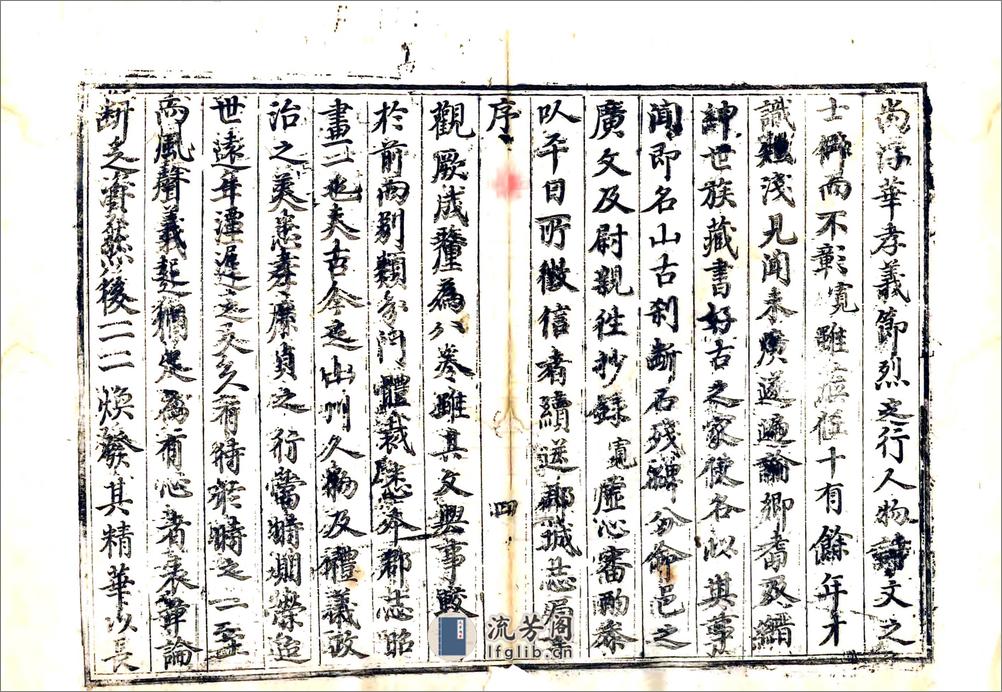 尚浮華孝義節烈之行人物詩文之
士鄉而不彰寬雖莅位十有餘年才
識淺見聞未廣遂遍諭鄉耆及縉
紳世族藏書好古之家使各以其事
聞即名山古刹斷石殘碑分俞邑之
廣文及尉親徃抄錄寬虛心審酌參
以平日所徵信者續送郡城志局
序 四
觀厥成釐為八卷雖其文與事較
於前而別類分門體裁悉本郡志昭
畫一也夫古今之山川久為及禮義政
治之美惡孝廉貞之行當時炳滎迨
世遠年湮遲之又久有待於時之一至
而風聲義起獨是為有心者秉筆論
斷之齎然後一二煥發其精華以長
流芳閣
lfglib.cn